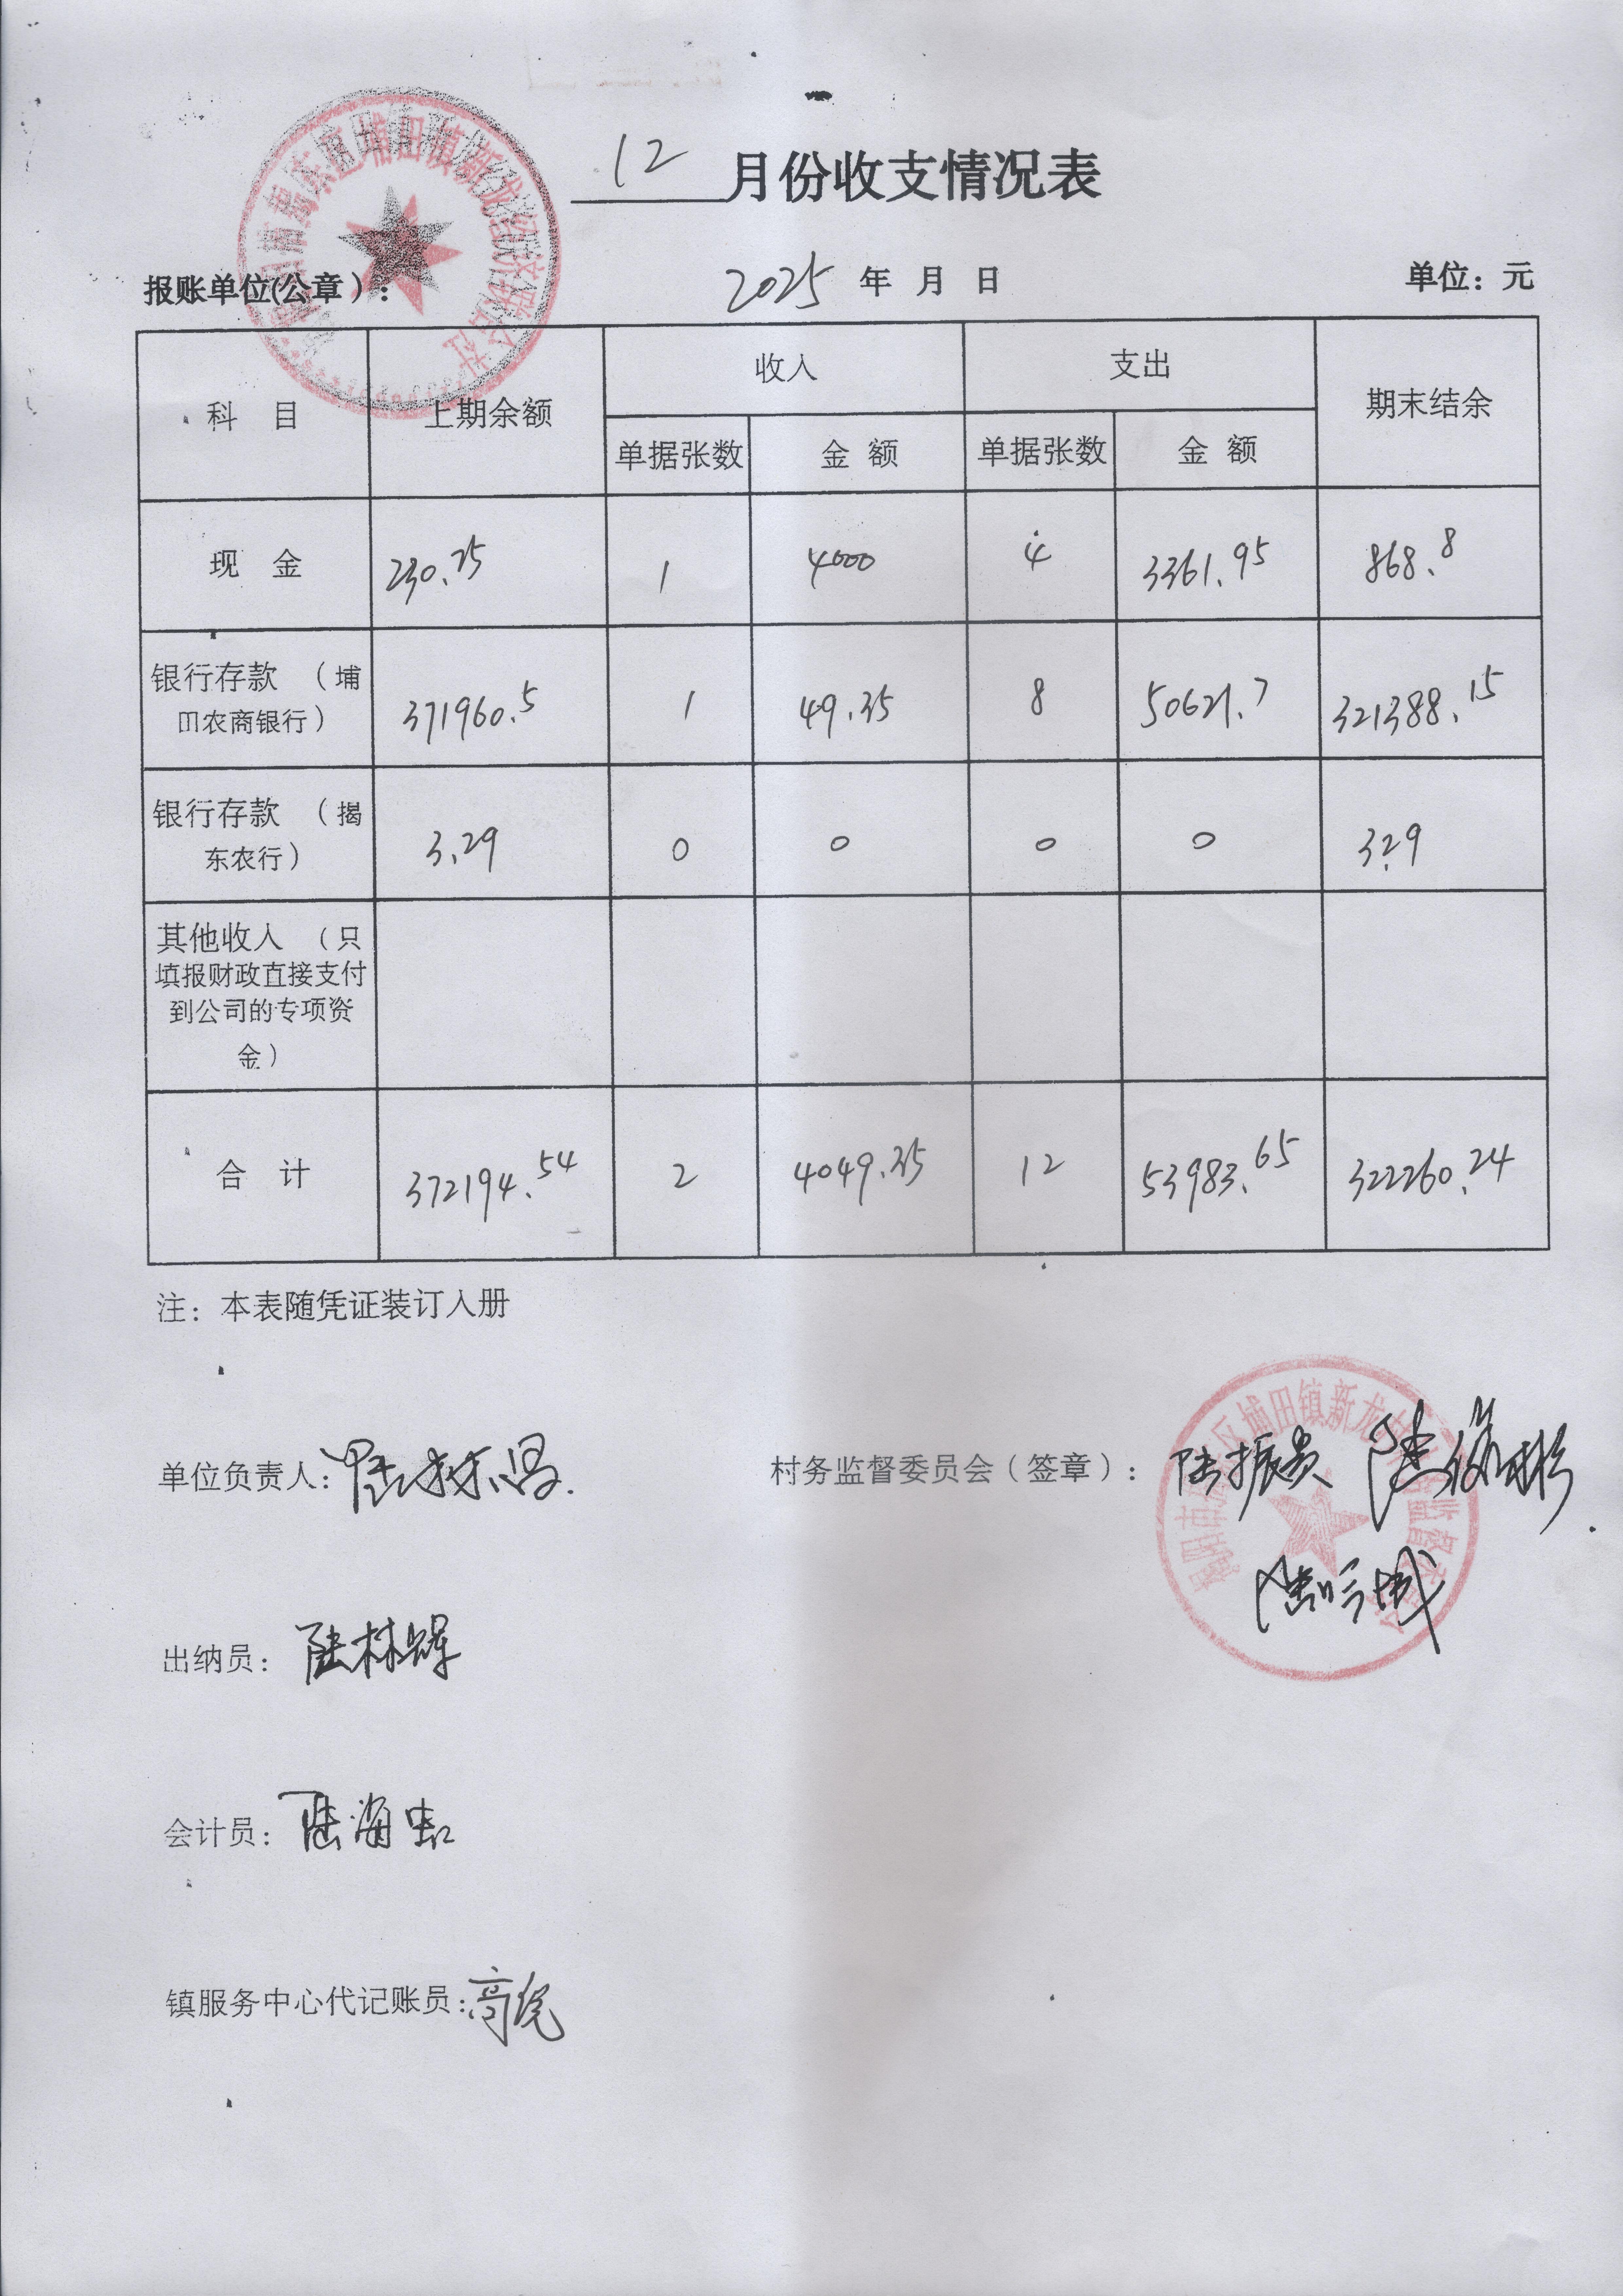 12 月份收支情况表
报账单位(公章): 2025 年 月 日 单位: 元
科 目 上期余额 收入 支出 期末结余
单据张数 金 额 单据张数 金 额
现 金 230.75 1 4000 4 3361.95 868.8
银行存款 (埔田农商银行) 371960.5 1 49.35 8 50621.7 321388.15
银行存款 (揭东农行) 3.29 0 0 0 0 3.29
其他收入 (只填报财政直接支付到公司的专项资金)
合 计 372194.54 2 4049.35 12 53983.65 322260.24
注: 本表随凭证装订入册
单位负责人: 村务监督委员会(签章): 陆振贵
出纳员: 陆林辉
会计员: 陆海
镇服务中心代记账员: 高